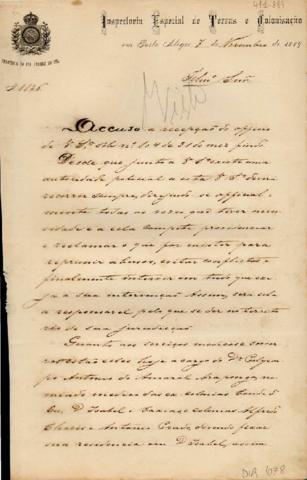 411-889
Inspectoria Especial de Terras e Colonisação
em Porto Alegre 7 de Novembro de 1889
Nº 1826
Visto
Accuso a recepção do officio
de Vª Sª sob nº 104 de 21 do mez findo
Desde que junto a Vª Sª existe uma
autoridade policial a esta Vª Sª deve
recorrer sempre, dirigindo-se official
mente todas as vezes que houver neces
sidade e a ela compete providenciar
e reclamar o que for mister para
reprimir abusos, evitar conflictos e
finalmente intervir em tudo que exi
ja a sua intervenção. Assim, será ela
a responsavel pelo que se der no territo
rio de sua jurisdicção.
Quanto aos serviços medicos e soccor
ros estão elles hoje a cargo do Dr
Antonio do Amaral, no
meado medico das ex-colonias Conde d'
Eu, D. Isabel e Caxias e colonias Alfredo
Chaves e Antonio Prado devendo fixar
sua residencia em D. Isabel, assim
DIA 678